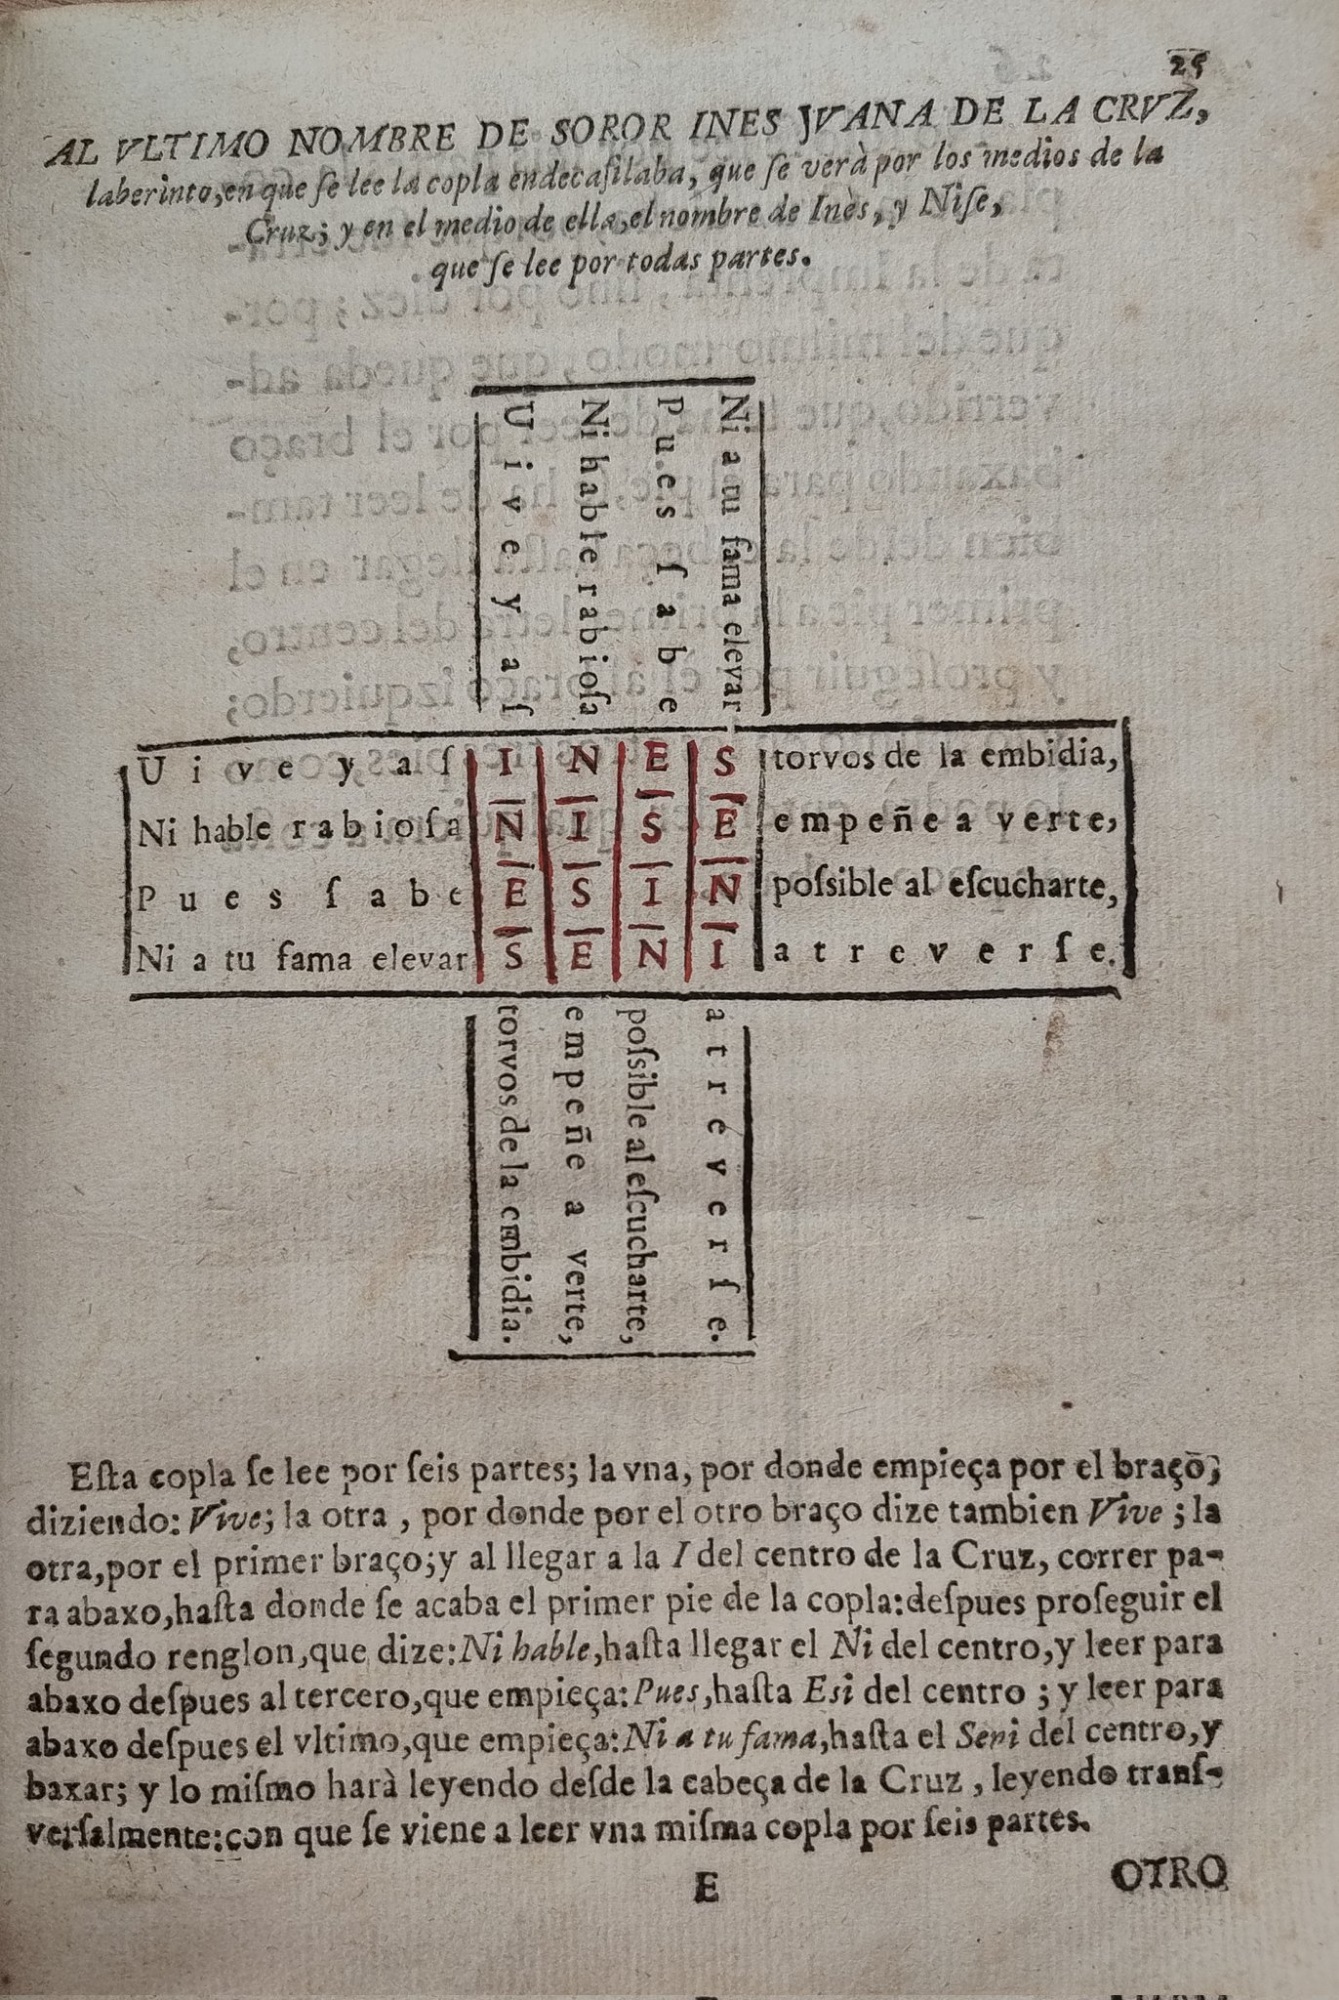 25
AL VLTIMO NOMBRE DE SOROR INES JVANA DE LA CRVZ,
laberinto, en que ſe lee la copla endecaſilaba, que ſe verà por los medios de la
Cruz; y en el medio de ella, el nombre de Inès, y Niſe,
que ſe lee por todas partes.
Ni a tu fama elevar
Pues ſabe
Ni hable rabioſa
Uive y aſ
Uive y aſ I N E S torvos de la embidia,
Ni hable rabioſa N I S E empeñe a verte,
Pues ſabe E S I N poſsible al eſcucharte,
Ni a tu fama elevar S E N I atreverſe.
atreverſe.
poſsible al eſcucharte,
empeñe a verte,
torvos de la embidia.
Eſta copla ſe lee por ſeis partes; la vna, por donde empieça por el braço;
diziendo: Vive; la otra, por donde por el otro braço dize tambien Vive; la
otra, por el primer braço; y al llegar a la I del centro de la Cruz, correr pa-
ra abaxo, haſta donde ſe acaba el primer pie de la copla: deſpues proſeguir el
ſegundo renglon, que dize: Ni hable, haſta llegar el Ni del centro, y leer para
abaxo deſpues al tercero, que empieça: Pues, haſta Esi del centro; y leer para
abaxo deſpues el vltimo, que empieça: Ni a tu fama, haſta el Seni del centro, y
baxar; y lo miſmo harà leyendo deſde la cabeça de la Cruz, leyendo tranſ-
verſalmente: con que ſe viene a leer vna miſma copla por ſeis partes.
E
OTRO